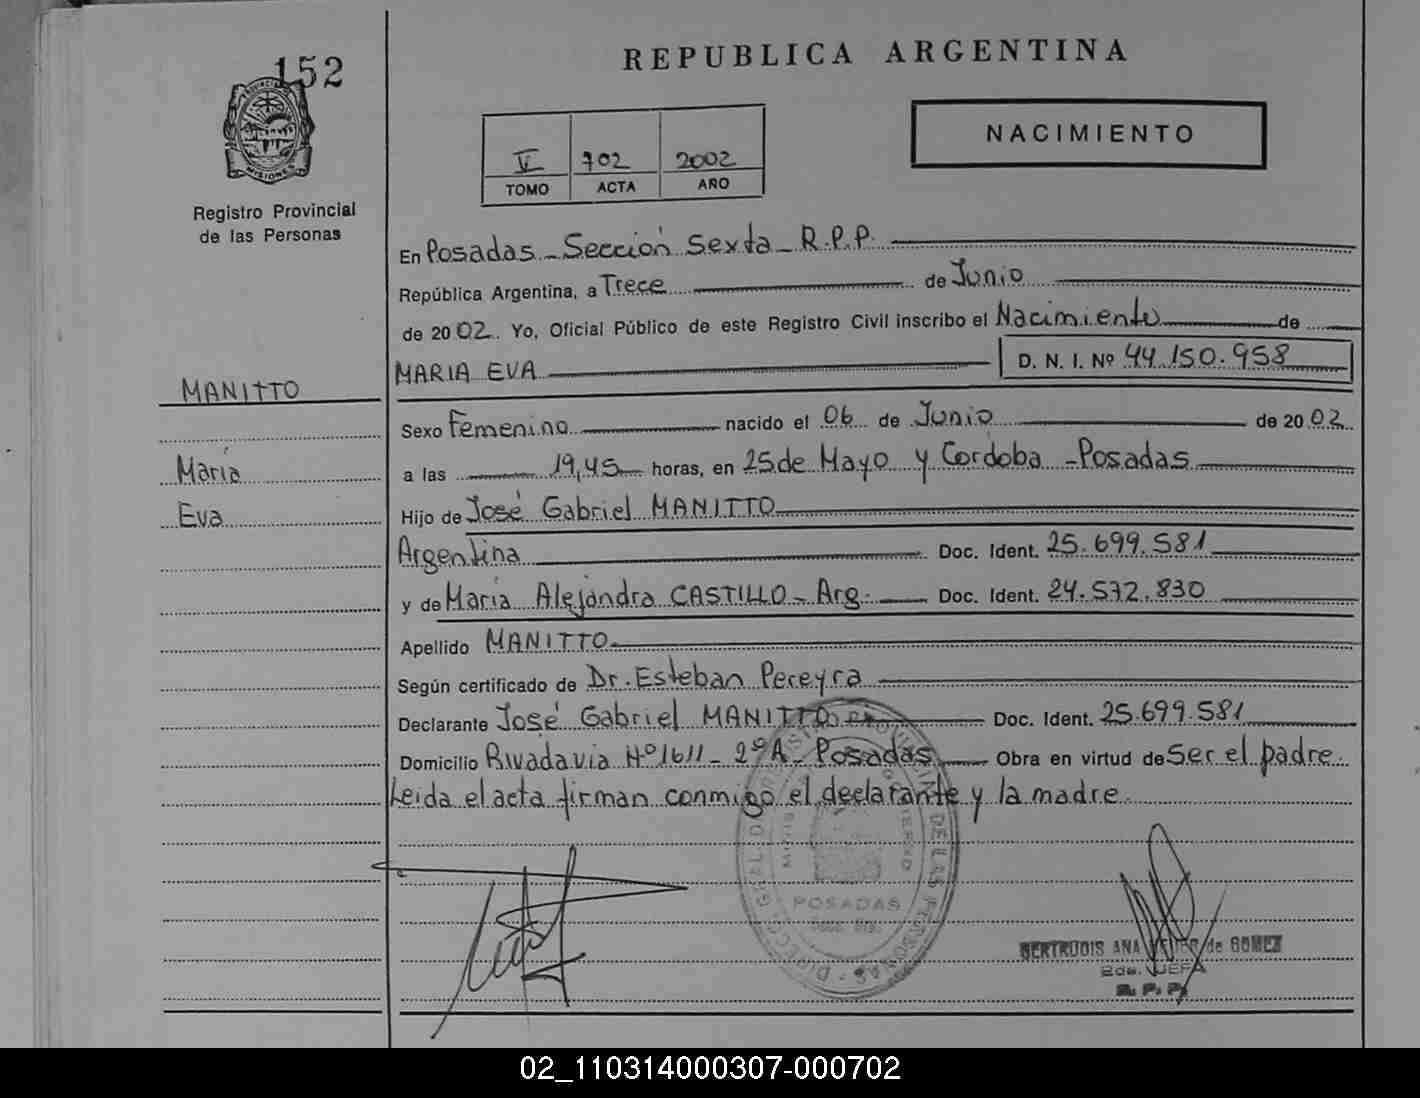 152
REPUBLICA ARGENTINA
NACIMIENTO
V 702 2002
TOMO ACTA AÑO
MISIONES
Registro Provincial
de las Personas
En Posadas - Sección Sexta - R.P.P.
República Argentina, a Trece de Junio
de 2002. Yo, Oficial Público de este Registro Civil inscribo el Nacimiento de
MARIA EVA D. N. I. Nº 44.150.958
MANITTO
Maria
Eva
Sexo Femenino nacido el 06 de Junio de 2002
a las 19,45 horas, en 25 de Mayo y Córdoba - Posadas
Hijo de José Gabriel MANITTO
Argentina Doc. Ident. 25.699.581
y de María Alejandra CASTILLO - Arg. Doc. Ident. 24.572.830
Apellido MANITTO
Según certificado de Dr. Esteban Pereyra
Declarante José Gabriel MANITTO Doc. Ident. 25.699.581
Domicilio Rivadavia Nº 1611 - 2º A - Posadas Obra en virtud de Ser el padre.
Leida el acta firman conmigo el declarante y la madre.
POSADAS
GERTRUDIS ANA de GOMEZ
2da. JEFA
R. P. P.
02_110314000307-000702